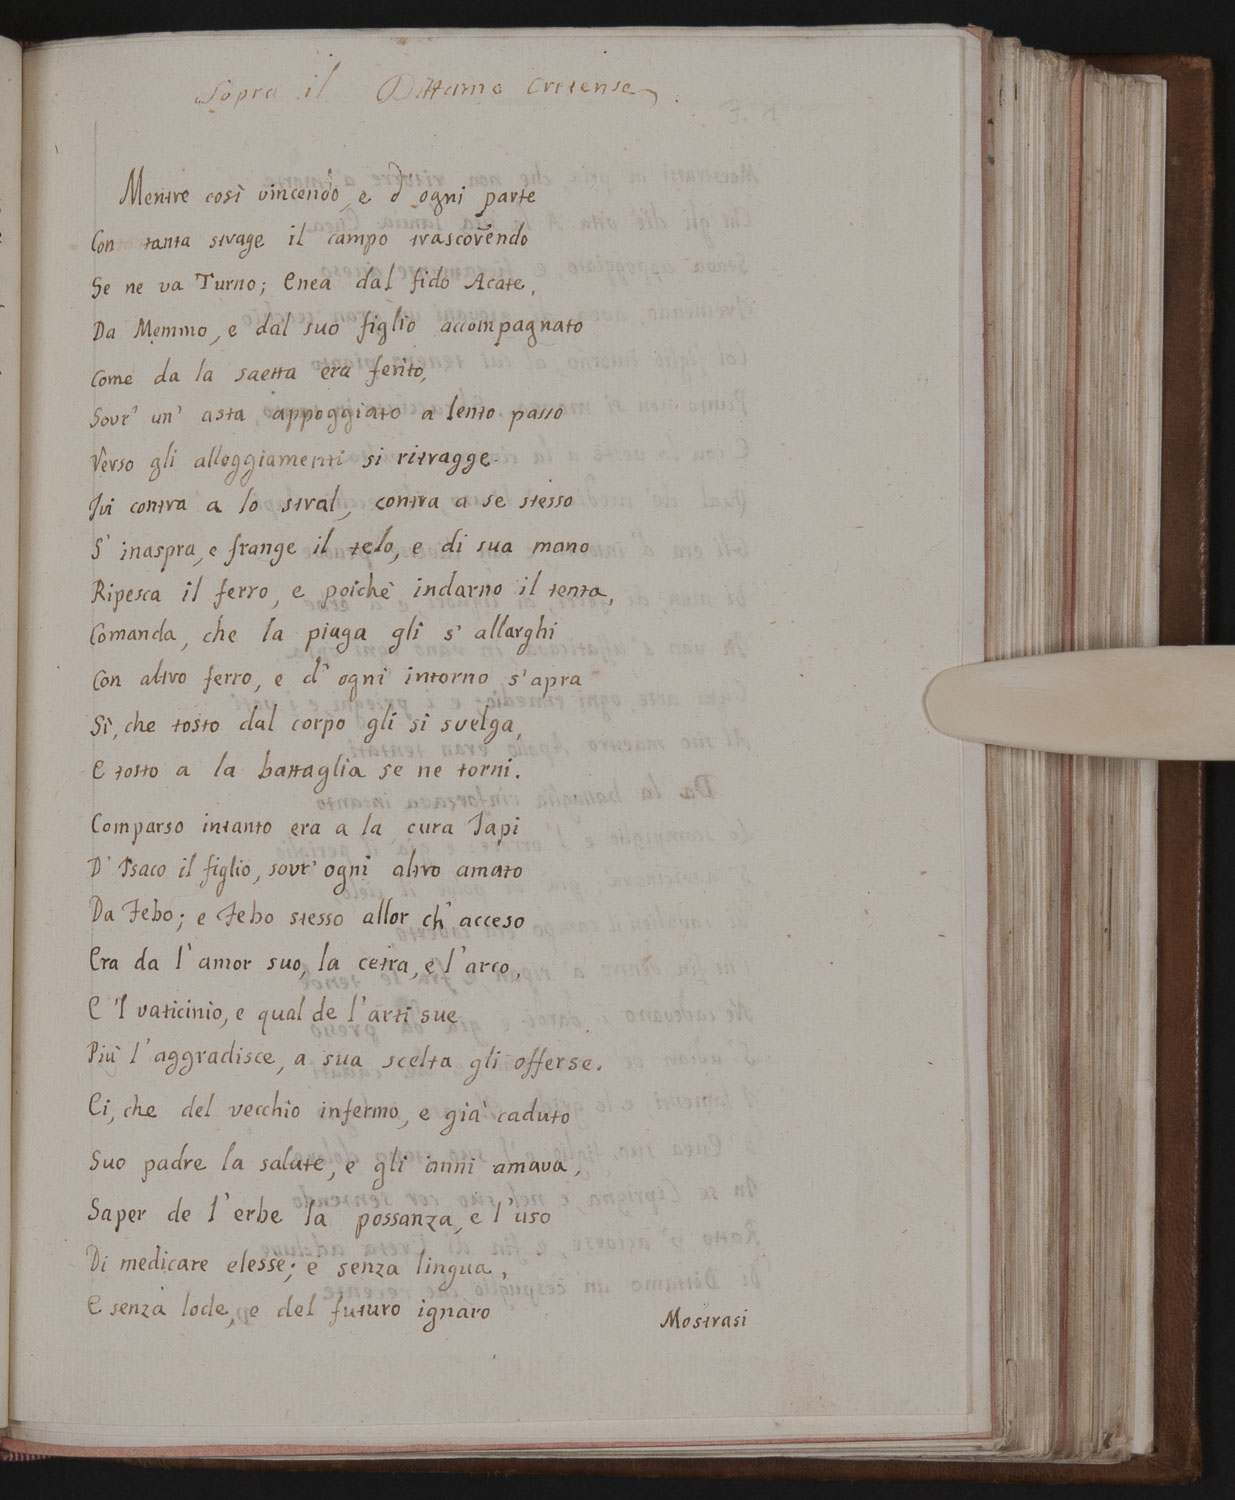 Sopra il Dittamo Cretense
Mentre così vincendo, e d' ogni parte
Con tanta strage il campo trascorrendo
Se ne va Turno; Enea dal fido Acate,
Da Memmo, e dal suo figlio accompagnato
Come da la saetta era ferito,
Sovr' un' asta appoggiato a lento passo
Verso gli alloggiamenti si ritragge.
Ivi contra a lo stral, contra a se stesso
S' inaspra, e frange il telo, e di sua mano
Ripesca il ferro, e poichè indarno il tenta,
Comanda, che la piaga gli s' allarghi
Con altro ferro, e d' ogni intorno s' apra
Sì, che tosto dal corpo gli si svelga,
E tosto a la battaglia se ne torni.
Comparso intanto era a la cura Iapi
D' Isaco il figlio, sovr' ogni altro amato
Da Febo; e Febo stesso allor ch' acceso
Era da l' amor suo, la cetra, e l' arco,
E 'l vaticinio, e qual de l' arti sue
Più l' aggradisce, a sua scelta gli offerse.
Ei, che del vecchio infermo, e già caduto
Suo padre la salute, e gli anni amava,
Saper de l' erbe la possanza, e l' uso
Di medicare elesse; e senza lingua,
E senza lode, e del futuro ignaro
Mostrasi